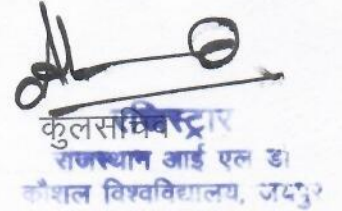 कुलसचिव
रजिस्ट्रार
राजस्थान आई एल डी
कौशल विश्वविद्यालय, जयपुर